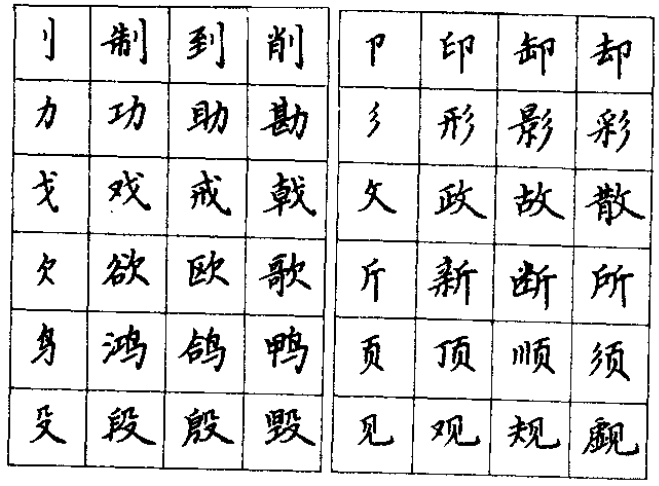 刂 制 到 削
力 功 助 勘
戈 戏 戒 戟
欠 欲 欧 歌
鸟 鸿 鸽 鸭
殳 段 殷 毁
卩 印 卸 却
彡 形 影 彩
攵 政 故 散
斤 新 断 所
页 顶 顺 须
见 观 规 觑